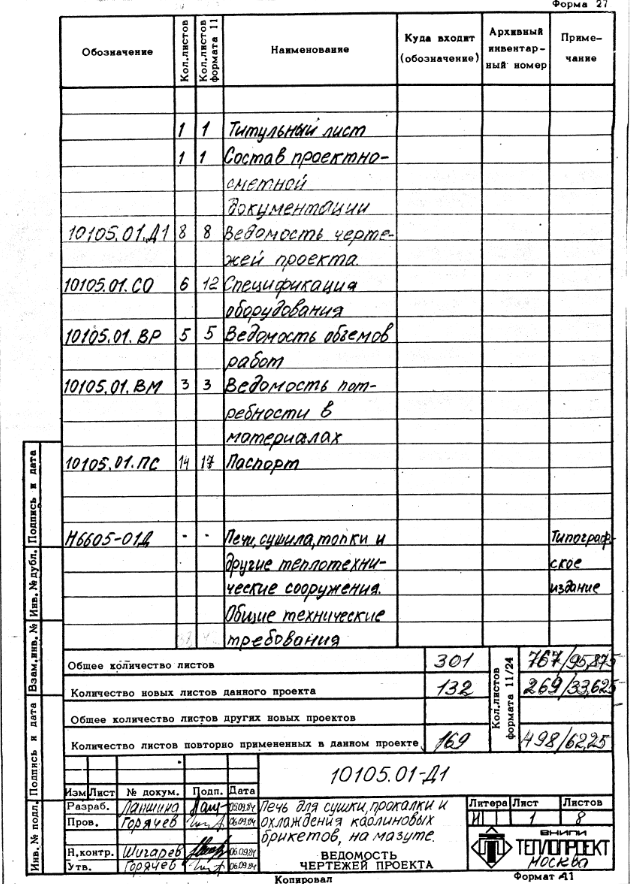 Форма 27
Обозначение Кол.листов Кол.листов формата 11 Наименование Куда входит (обозначение) Архивный инвентарный номер Примечание
1 1 Титульный лист
1 1 Состав проектно-
сметной
документации
10105.01.Д1 8 8 Ведомость черте-
жей проекта
10105.01.СО 6 12 Спецификация
оборудования
10105.01.ВР 5 5 Ведомость объемов
работ
10105.01.ВМ 3 3 Ведомость пот-
ребности в
материалах
10105.01.ПС 14 17 Паспорт
Н6605-01Д - - Печи, сушила, топки и Типограф-
другие теплотехни- ское
ческие сооружения. издание
Общие технические
требования
Общее количество листов 301 Кол.листов формата 11/24 767/95,875
Количество новых листов данного проекта 132 269/33,625
Общее количество листов других новых проектов
Количество листов повторно примененных в данном проекте 169 498/62,25
10105.01-Д1
Изм Лист № докум. Подп. Дата
Разраб. Паншина 05.09.84 Печь для сушки, прокалки и Литера Лист Листов
Пров. Горячев 06.09.84 охлаждения каолиновых И 1 8
брикетов, на мазуте.
Н.контр. Шигарев 06.09.84 ВЕДОМОСТЬ ВНИПИ
Утв. Горячев 06.09.84 ЧЕРТЕЖЕЙ ПРОЕКТА ТЕПЛОПРОЕКТ
Москва
Копировал Формат А1
Инв. № подл. Подпись и дата Взам.инв. № Инв. № дубл. Подпись и дата